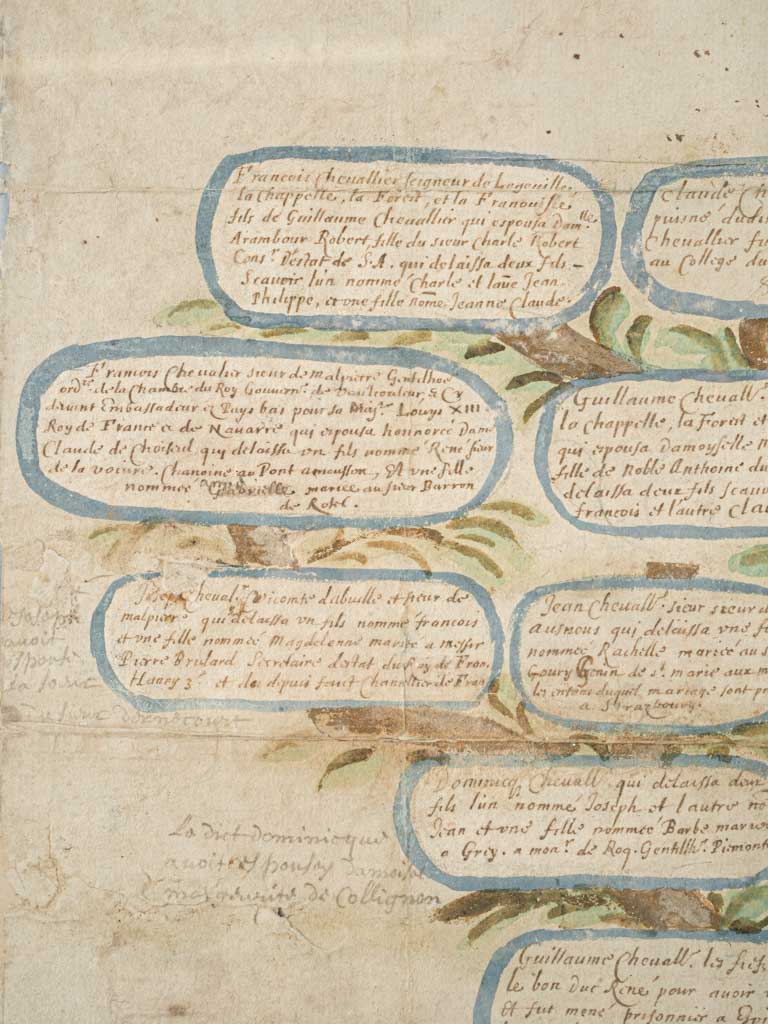 Francois Chevallier seigneur de Logeuille,
la Chappelle, la Forest, et la Franouisse
fils de Guillaume Chevallier qui espousa Dam.lle
Arambour Robert, fille du sieur Charle Robert
Cons.r Destat de S.A. qui delaissa deux fils –
Scauoir lun nommé Charle et laue Jean
Philippe, et vne fille nomé Jeanne Claude.
Claude Ch
puisné dudi
Chevallier fu
au College du
Francois Chevalier sieur de malpierre Gentilhoe
ord.re de la Chambre du Roy Gouvern.r de &
deuant Embassadeur es Pays bas pour sa Maj.te Louys XIII
Roy de France et de Nauarre qui espousa honnorée Dame
Claude de Choiseul, qui delaissa vn fils nommé René sieur
de la voiure. Chanoine au Pont amousson, Et vne fille
nommée Gabrielle mariee au sieur Barron
de Rosel.
Guillaume Cheuall.
la Chappelle, la Forest et
qui espousa Damoyselle
fille de Noble Anthoine du
delaissa deux fils scauo
francois et lautre Cla
Joseph Cheual.r Vicomte dabuille et sieur de
malpierre qui delaissa vn fils nommé francois
et vne fille nommée Magdelenne mariee a Messir
Pierre Brulard Secretaire destat du Roy de Fran.
Hanry 3.e et de depuis faict Chancellier de Fran
Jean Cheuall.r sieur
Ausnous qui delaissa vne fi
nommée Rachelle mariee au s
Goury Genin de s.te marie aux m
les enfans duquil mariage sont p
a Strazboury.
Joseph
auoit
espousé
la soeur
du sieur dernecourt
Dominicq Cheuall.r qui delaissa deux
fils lun nommé Joseph et lautre no
Jean et vne fille nommée Barbe mariee
a Grey. a mon.r de Roq. Gentilh.e Piemont
Le dict dominicque
auoit espousey damoisel
marguerite de Collignon
Guillaume Cheuall.r les
le bon duc René pour auoir
Et fut mené prisonnier a